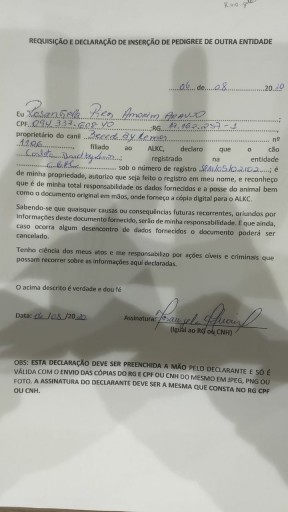 REQUISIÇÃO E DECLARAÇÃO DE INSERÇÃO DE PEDIGREE DE OUTRA ENTIDADE
04 de 08 2020
Eu Pires Amorim
CPF RG
proprietário do canil nº
1106 filiado ao ALKC, declaro que o cão
registrado na entidade
sob o número de registro é
de minha propriedade, autorizo que seja feito o registro em meu nome, e reconheço
que é de minha total responsabilidade os dados fornecidos e a posse do animal bem
como o documento original em mãos, onde forneço a cópia digital para o ALKC.
Sabendo-se que quaisquer causas ou consequências futuras recorrentes, oriundos por
informações deste documento fornecido, serão de minha responsabilidade. E que ainda,
caso ocorra algum desencontro de dados fornecidos o documento poderá ser
cancelado.
Tenho ciência dos meus atos e me responsabilizo por ações cíveis e criminais que
possam recorrer sobre as informações aqui declaradas.
O acima descrito é verdade e dou fé
Data: 04/08/2020 Assinatura:
(Igual ao RG ou CNH)
OBS: ESTA DECLARAÇÃO DEVE SER PREENCHIDA A MÃO PELO DECLARANTE E SÓ É
VÁLIDA COM O ENVIO DAS CÓPIAS DO RG E CPF OU CNH DO MESMO EM JPEG, PNG OU
FOTO. A ASSINATURA DO DECLARANTE DEVE SER A MESMA QUE CONSTA NO RG CPF
OU CNH.